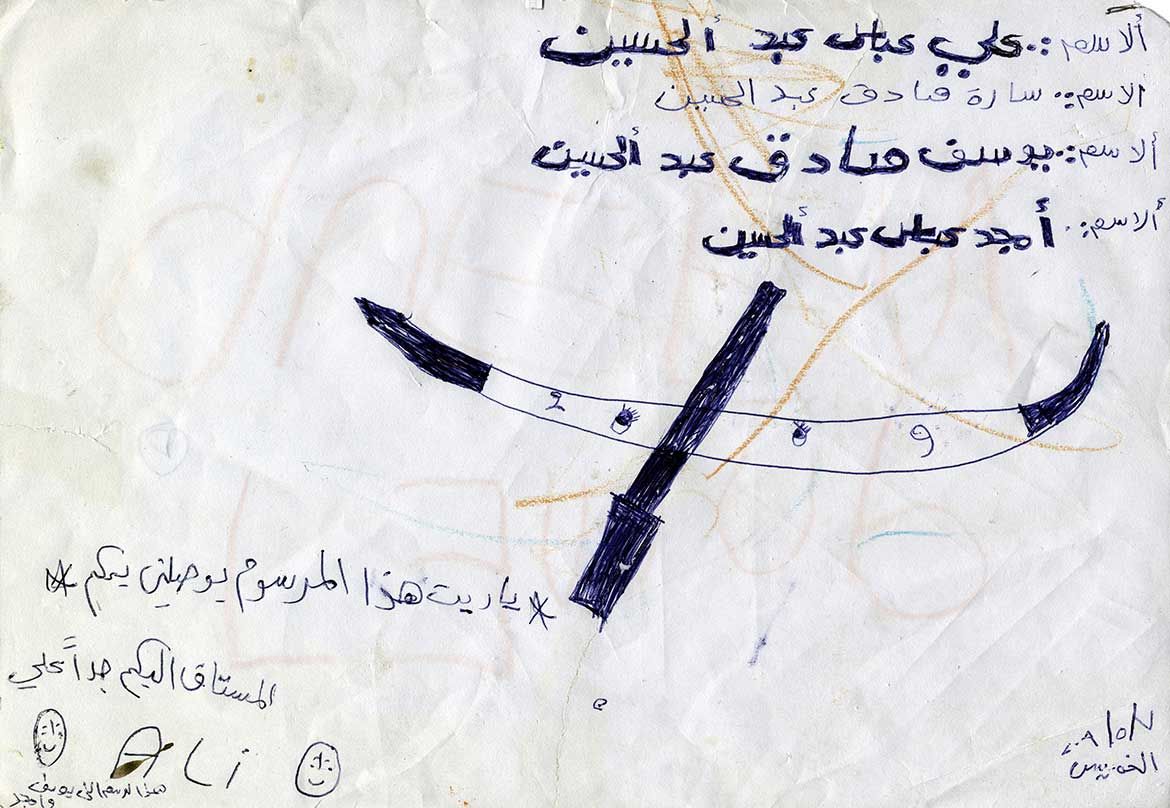 ألاسم:: علي عباس عبد ألحسين
الاسم:: سارة صادق عبد الحسين
ألاسم:: يوسف صادق عبد ألحسين
ألاسم:: أمجد عباس عبد ألحسين
2 9
* ياريت هذا المرسوم يوصلني يمكم *
المشتاق اليكم جداً علي
ALi
هذا الرسم الى يوسف
وامجد
الخميس